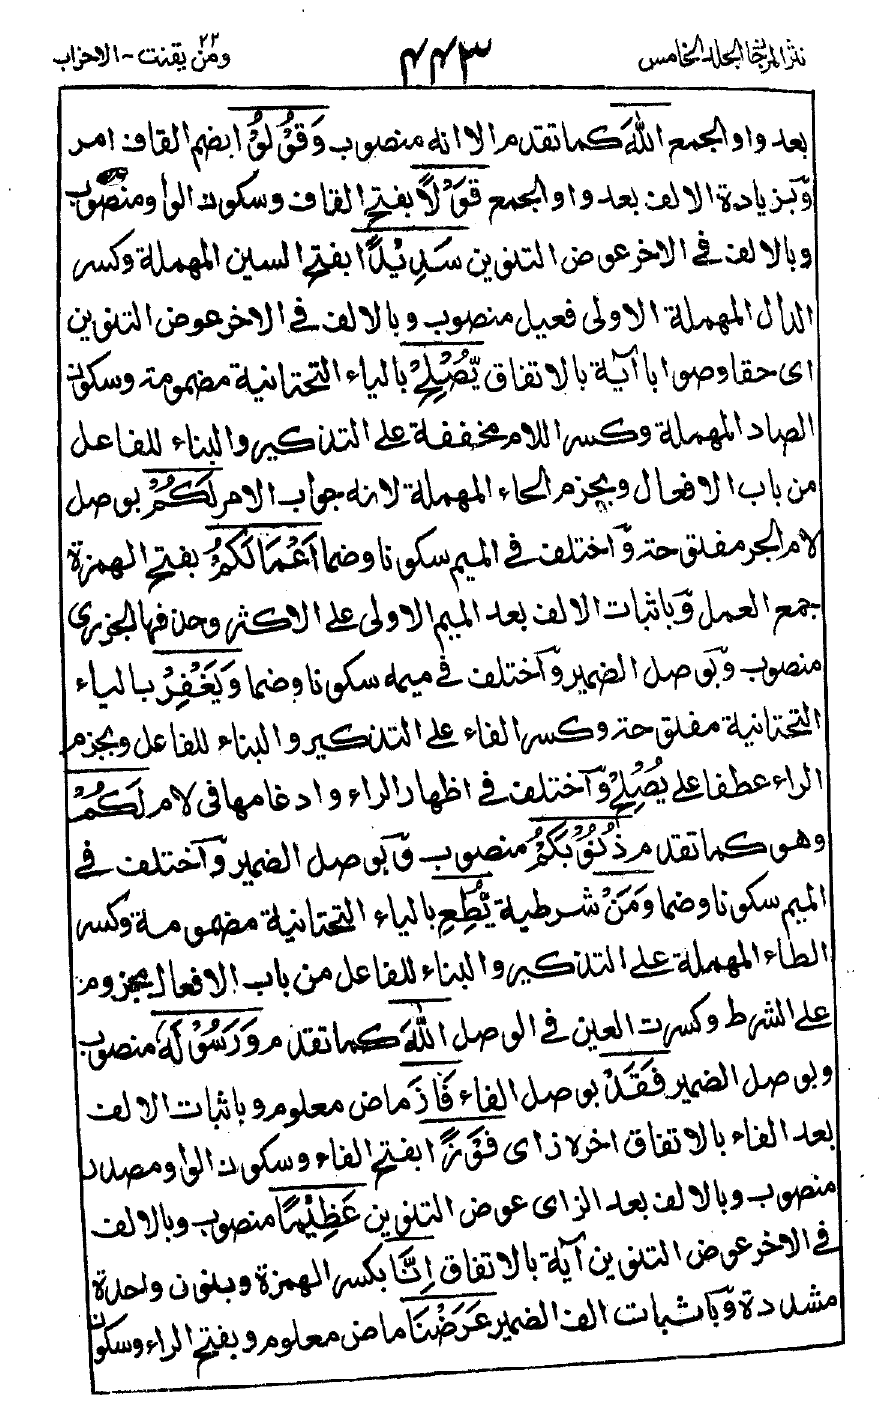 نثر المرجان المجلد الخامس
٤٤٣
ومن يقنت - الاحزاب
٢٢
بعد واو الجمع اللّٰهَ كما تقدم الا انه منصوب وَقُوْلُوْا بضم القاف امر
وبزيادة الالف بعد واو الجمع قَوْلًا بفتح القاف وسكون الواو ومنصوب
وبالالف فى الاخر عوض التنوين سَدِيْدًا بفتح السين المهملة وكسر
الدال المهملة الاولى فعيل منصوب وبالالف فى الاخر عوض التنوين
اى حقا وصوابا آية بالاتفاق يُّصْلِحْ بالياء التحتانية مضمومة وسكون
الصاد المهملة وكسر اللام مخففة على التذكير والبناء للفاعل
من باب الافعال وبجزم الحاء المهملة لانه جواب الامر لَكُمْ بوصل
لام الجر مفتوحة وٓاختلف فى الميم سكونا وضما اَعْمَالَكُمْ بفتح الهمزة
جمع العمل وٓباثبات الالف بعد الميم الاولى على الاكثر وحذفها الجزرى
منصوب وٓبوصل الضمير وٓاختلف فى ميمه سكونا وضما وَيَغْفِرْ بالياء
التحتانية مفتوحة وكسر الفاء على التذكير والبناء للفاعل وبجزم
الراء عطفا على يُصْلِحْ وٓاختلف فى اظهار الراء وادغامها فى لام لَكُمْ
وهو كما تقدم ذُنُوْبَكُمْ منصوب وٓبوصل الضمير وٓاختلف فى
الميم سكونا وضما وَمَنْ شرطية يُّطِعِ بالياء التحتانية مضمومة وكسر
الطاء المهملة على التذكير والبناء للفاعل من باب الافعال مجزوم
على الشرط وكسرت العين فى الوصل اللّٰهَ كما تقدم وَرَسُوْلَهٗ منصوب
وبوصل الضمير فَقَدْ بوصل الفاء فَازَ ماض معلوم وباثبات الالف
بعد الفاء بالاتفاق اخره زاى فَوْزًا بفتح الفاء وسكون الواو مصدر
منصوب وبالالف بعد الزاى عوض التنوين عَظِيْمًا منصوب وبالالف
فى الاخر عوض التنوين آية بالاتفاق اِنَّا بكسر الهمزة وبنون واحدة
مشددة وٓباثبات الف الضمير عَرَضْنَا ماض معلوم وبفتح الراء وسكون